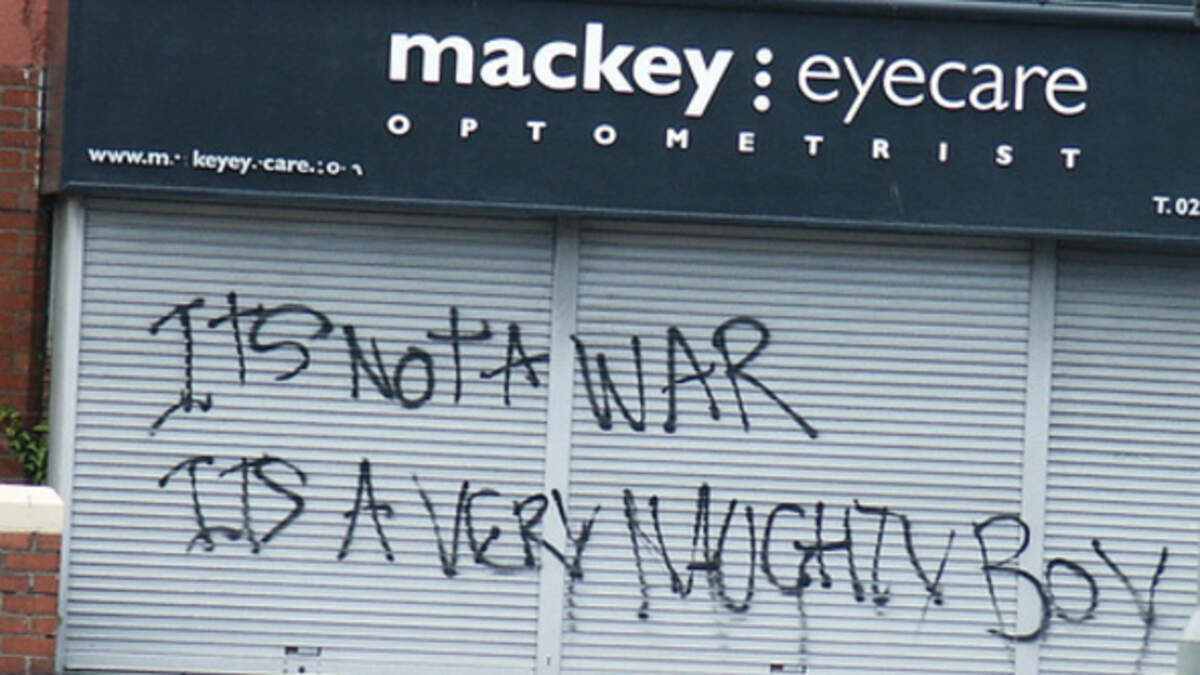 mackey : eyecare
OPTOMETRIST
T. 02
ITS NOT A WAR
ITS A VERY NAUGHTY BOY